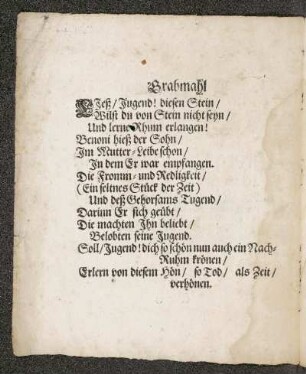 Grabmahl
LIeß/ Jugend! diesen Stein/
Wilst du von Stein nicht seyn/
Und lerne Rhum erlangen!
Benoni hieß der Sohn/
Im Mutter-Leibe schon/
In dem Er war empfangen.
Die Fromm- und Redligkeit/
(Ein seltnes Stück der Zeit)
Und deß Gehorsams Tugend/
Darinn Er sich geübt/
Die machten Ihn beliebt/
Belobten seine Jugend.
Soll/ Jugend! dich so schön nun auch ein Nach-
Ruhm krönen/
Erlern von diesem Hön/ so Tod/ als Zeit/
verhönen.